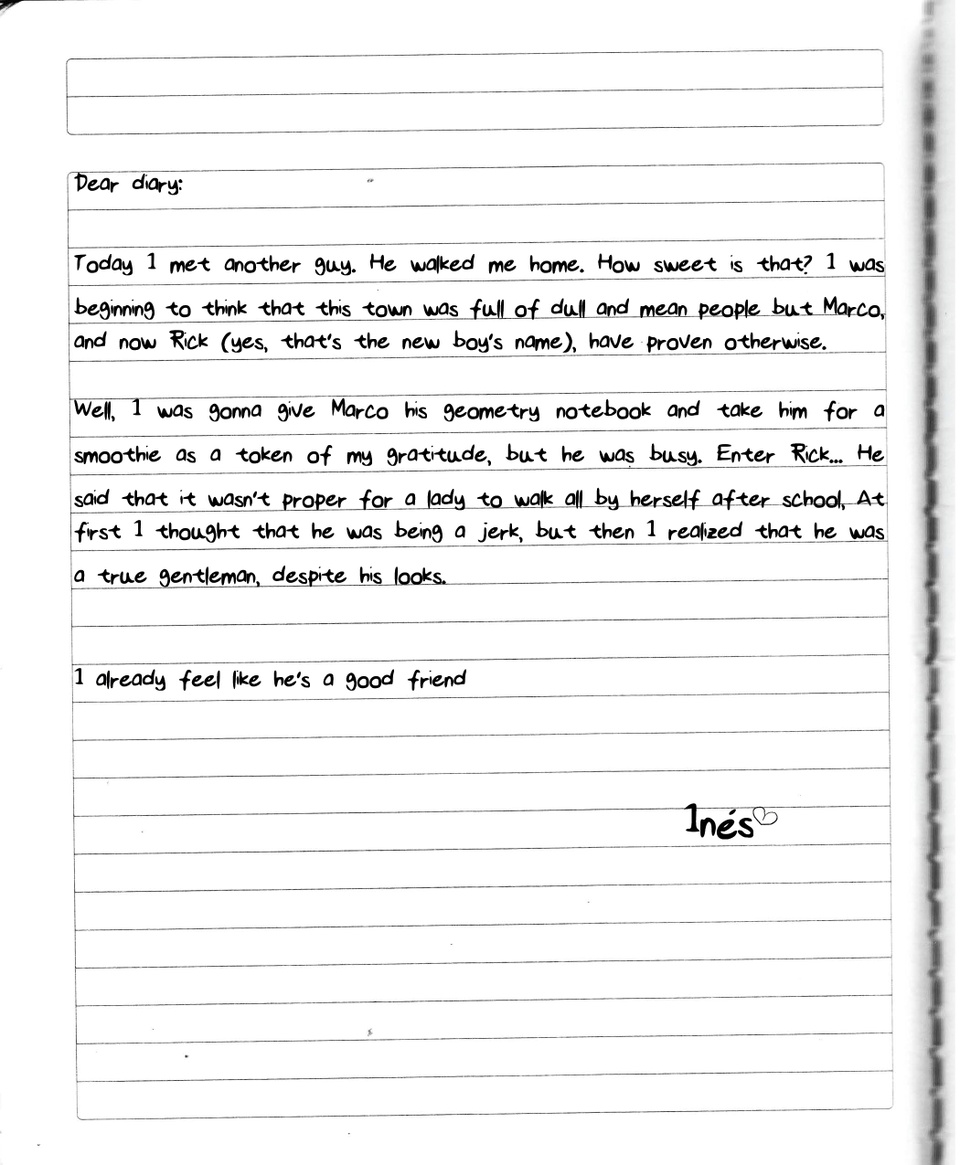 Dear diary:
Today I met another guy. He walked me home. How sweet is that? I was
beginning to think that this town was full of dull and mean people but Marco,
and now Rick (yes, that's the new boy's name), have proven otherwise.
Well, I was gonna give Marco his geometry notebook and take him for a
smoothie as a token of my gratitude, but he was busy. Enter Rick... He
said that it wasn't proper for a lady to walk all by herself after school. At
first I thought that he was being a jerk, but then I realized that he was
a true gentleman, despite his looks.
I already feel like he's a good friend
Inés♡